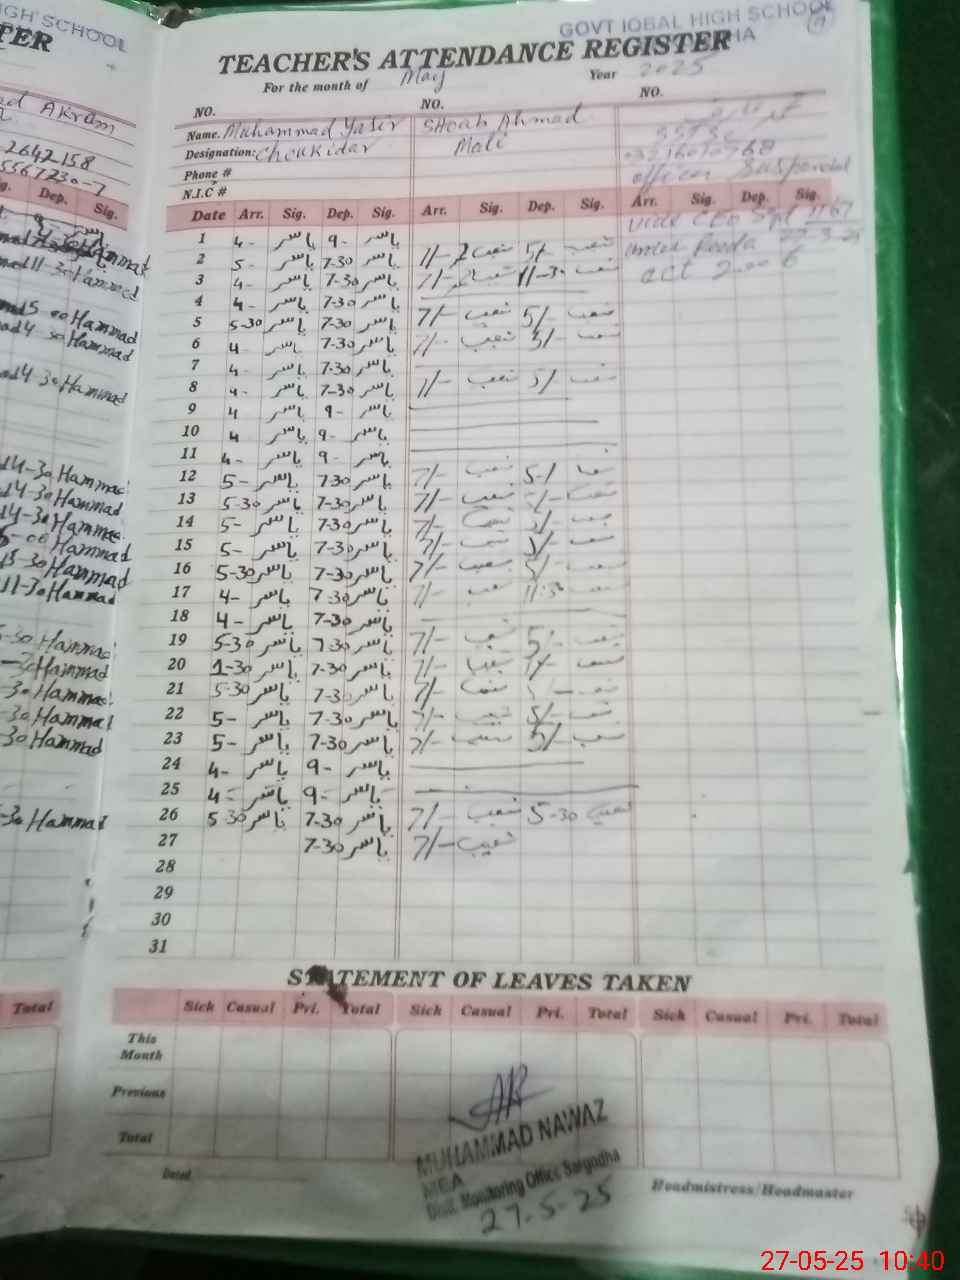 GH SCHOOL
TER
GOVT IQBAL HIGH SCHOOL
HA
TEACHER'S ATTENDANCE REGISTER
For the month of May Year 2025
NO. NO. NO.
Akram
2642158
5567230-7
Name. Muhammad Yasir Shoaib Ahmad
Designation: Choukidar Mali
Phone #
N.I.C #
officer Suspended
vide CEO
under Peeda
act 2006
Dep. Sig.
Date Arr. Sig. Dep. Sig. Arr. Sig. Dep. Sig. Arr. Sig. Dep. Sig.
1 4- یاسر 9- یاسر
2 5- یاسر 7-30 یاسر 7/- شعیب 5/- شعیب
3 4- یاسر 7-30 یاسر 7/- شعیب 11-30 شعیب
4 4- یاسر 7-30 یاسر
5 5-30 یاسر 7-30 یاسر 7/- شعیب 5/- شعیب
6 4- یاسر 7-30 یاسر 7/- شعیب 5/- شعیب
7 4- یاسر 7-30 یاسر
8 4- یاسر 7-30 یاسر 7/- شعیب 5/- شعیب
9 4 یاسر 9- یاسر
10 4 یاسر 9- یاسر
11 4- یاسر 9- یاسر
12 5- یاسر 7-30 یاسر 7/- شعیب 5-/
13 5-30 یاسر 7-30 یاسر 7/- شعیب 5/- شعیب
14 5- یاسر 7-30 یاسر 7/- شعیب 5/- شعیب
15 5- یاسر 7-30 یاسر 7/- شعیب 5/- شعیب
16 5-30 یاسر 7-30 یاسر 7/- شعیب 5/- شعیب
17 4- یاسر 7 30 یاسر 7/- شعیب 11:30 شعیب
18 4- یاسر 7-30 یاسر
19 5-30 یاسر 7 30 یاسر 7/- شعیب 5/- شعیب
20 1-30 یاسر 7-30 یاسر 7/- شعیب شعیب
21 5-30 یاسر 7-30 یاسر 7/- شعیب 5/- شعیب
22 5- یاسر 7-30 یاسر 7/- شعیب 5/- شعیب
23 5- یاسر 7-30 یاسر 7/- شعیب 5/- شعیب
24 4- یاسر 9- یاسر
25 4- یاسر 9- یاسر
26 5 30 یاسر 7-30 یاسر 7/- شعیب 5-30 شعیب
27 7-30 یاسر 7/- شعیب
28
29
30
31
Hammad
11-30 Hammad
5 00 Hammad
4 30 Hammad
4-30 Hammad
14-30 Hammad
14-30 Hammad
14-30 Hammad
5-00 Hammad
15-30 Hammad
11-30 Hammad
5-30 Hammad
Hammad
-30 Hammad
-30 Hammad
30 Hammad
-30 Hammad
STATEMENT OF LEAVES TAKEN
Total
Sick Casual Pri. Total Sick Casual Pri. Total Sick Casual Pri. Total
This Month
Previous
Total
Dated
MUHAMMAD NAWAZ
MEA
Distt. Monitoring Office Sargodha
27-5-25
Headmistress/Headmaster
27-05-25 10:40